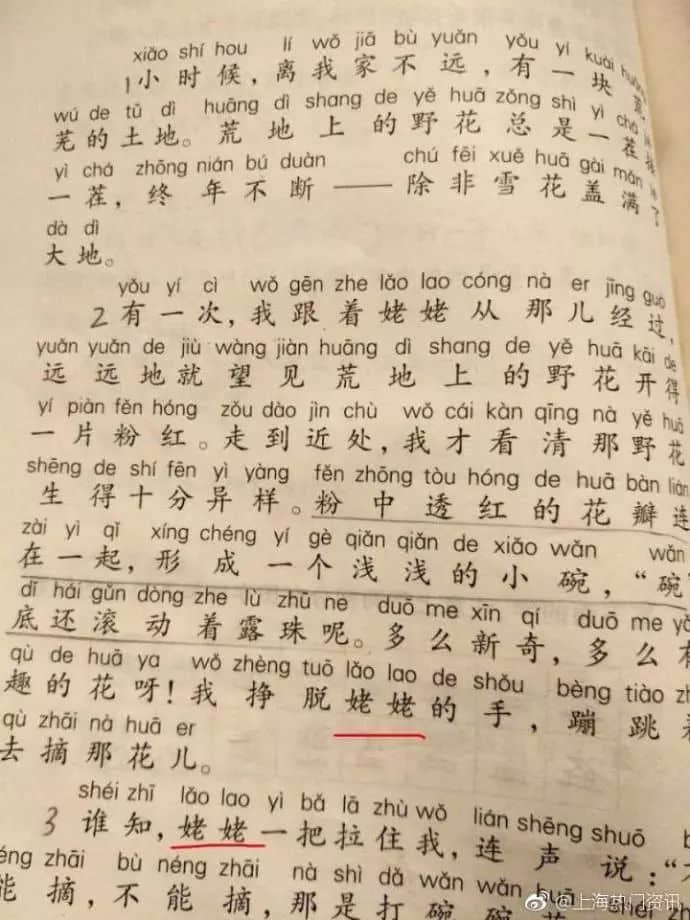 xiǎo shí hou lí wǒ jiā bù yuǎn yǒu yí kuài
1小时候，离我家不远，有一块
wú de tǔ dì huāng dì shang de yě huā zǒng shì yì chá
芜的土地。荒地上的野花总是一茬
yì chá zhōng nián bú duàn chú fēi xuě huā gài mǎn
一茬，终年不断——除非雪花盖满了
dà dì
大地。
yǒu yí cì wǒ gēn zhe lǎo lao cóng nà er jīng guò
2有一次，我跟着姥姥从那儿经过，
yuǎn yuǎn de jiù wàng jiàn huāng dì shang de yě huā kāi de
远远地就望见荒地上的野花开得
yí piàn fěn hóng zǒu dào jìn chù wǒ cái kàn qīng nà yě huā
一片粉红。走到近处，我才看清那野花
shēng de shí fēn yì yàng fěn zhōng tòu hóng de huā bàn lián
生得十分异样。粉中透红的花瓣连
zài yì qǐ xíng chéng yí gè qiǎn qiǎn de xiǎo wǎn wǎn
在一起，形成一个浅浅的小碗，“碗”
dǐ hái gǔn dòng zhe lù zhū ne duō me xīn qí duō me
底还滚动着露珠呢。多么新奇，多么有
qù de huā ya wǒ zhèng tuō lǎo lao de shǒu bèng tiào
趣的花呀！我挣脱姥姥的手，蹦跳着
qù zhāi nà huā er
去摘那花儿。
shéi zhī lǎo lao yì bǎ lā zhù wǒ lián shēng shuō
3谁知，姥姥一把拉住我，连声说：“
néng zhāi bù néng zhāi nà shì dǎ wǎn wǎn huā
能摘，不能摘，那是打碗碗花
@上海热门资讯